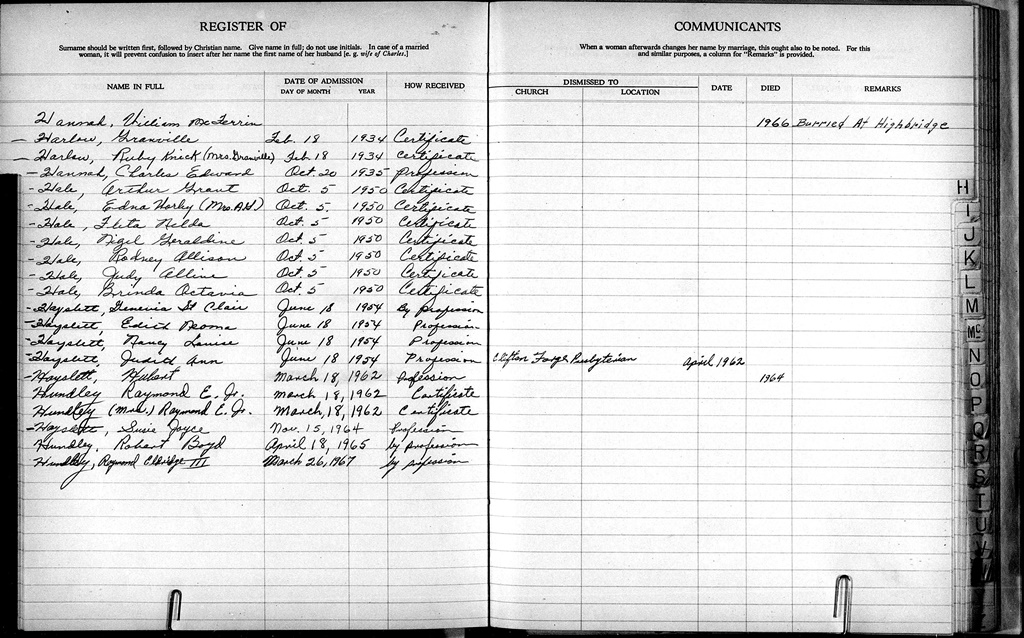 REGISTER OF
Surname should be written first, followed by Christian name. Give name in full; do not use initials. In case of a married
woman, it will prevent confusion to insert after her name the first name of her husband [e. g. wife of Charles.]
NAME IN FULL DATE OF ADMISSION HOW RECEIVED
DAY OF MONTH YEAR
COMMUNICANTS
When a woman afterwards changes her name by marriage, this ought also to be noted. For this
and similar purposes, a column for "Remarks" is provided.
DISMISSED TO DATE DIED REMARKS
CHURCH LOCATION
Hannah, William McFerrin 1966 Burried At Highbridge
- Harlow, Granville Feb. 18 1934 Certificate
- Harlow, Ruby Knick (Mrs. Granville) Feb 18 1934 Certificate
- Hannah, Charles Edward Oct. 20 1935 Profession
- Hale, Arthur Grant Oct. 5 1950 Certificate
- Hale, Edna (Mrs. A.G.) Oct. 5 1950 Certificate
- Hale, Oct. 5 1950 Certificate
- Hale, Geraldine Oct 5 1950 Certificate
- Hale, Rodney Allison Oct 5 1950 Certificate
- Hale, Judy Alline Oct 5 1950 Certificate
- Hale, Brinda Octavia Oct 5 1950 Certificate
- Hayslett, Genevia St Clair June 18 1954 By Profession
- Hayslett, Edith Neoma June 18 1954 Profession
- Hayslett, Nancy Louise June 18 1954 Profession
- Hayslett, Judith Ann June 18 1954 Profession Clifton Forge Presbyterian April 1962
- Hayslett, Hubert March 18, 1962 Profession 1964
Hundley Raymond E. Jr. March 18, 1962 Certificate
Hundley (Mrs.) Raymond E. Jr. March, 18, 1962 Certificate
- Hayslett, Susie Joyce Nov. 15, 1964 Profession
Hundley, Robert Boyd April 18, 1965 by profession
Hundley, Raymond Eldridge III March 26, 1967 by profession
H
I
J
K
L
M
Mc
N
O
P
Q
R
S
T
U